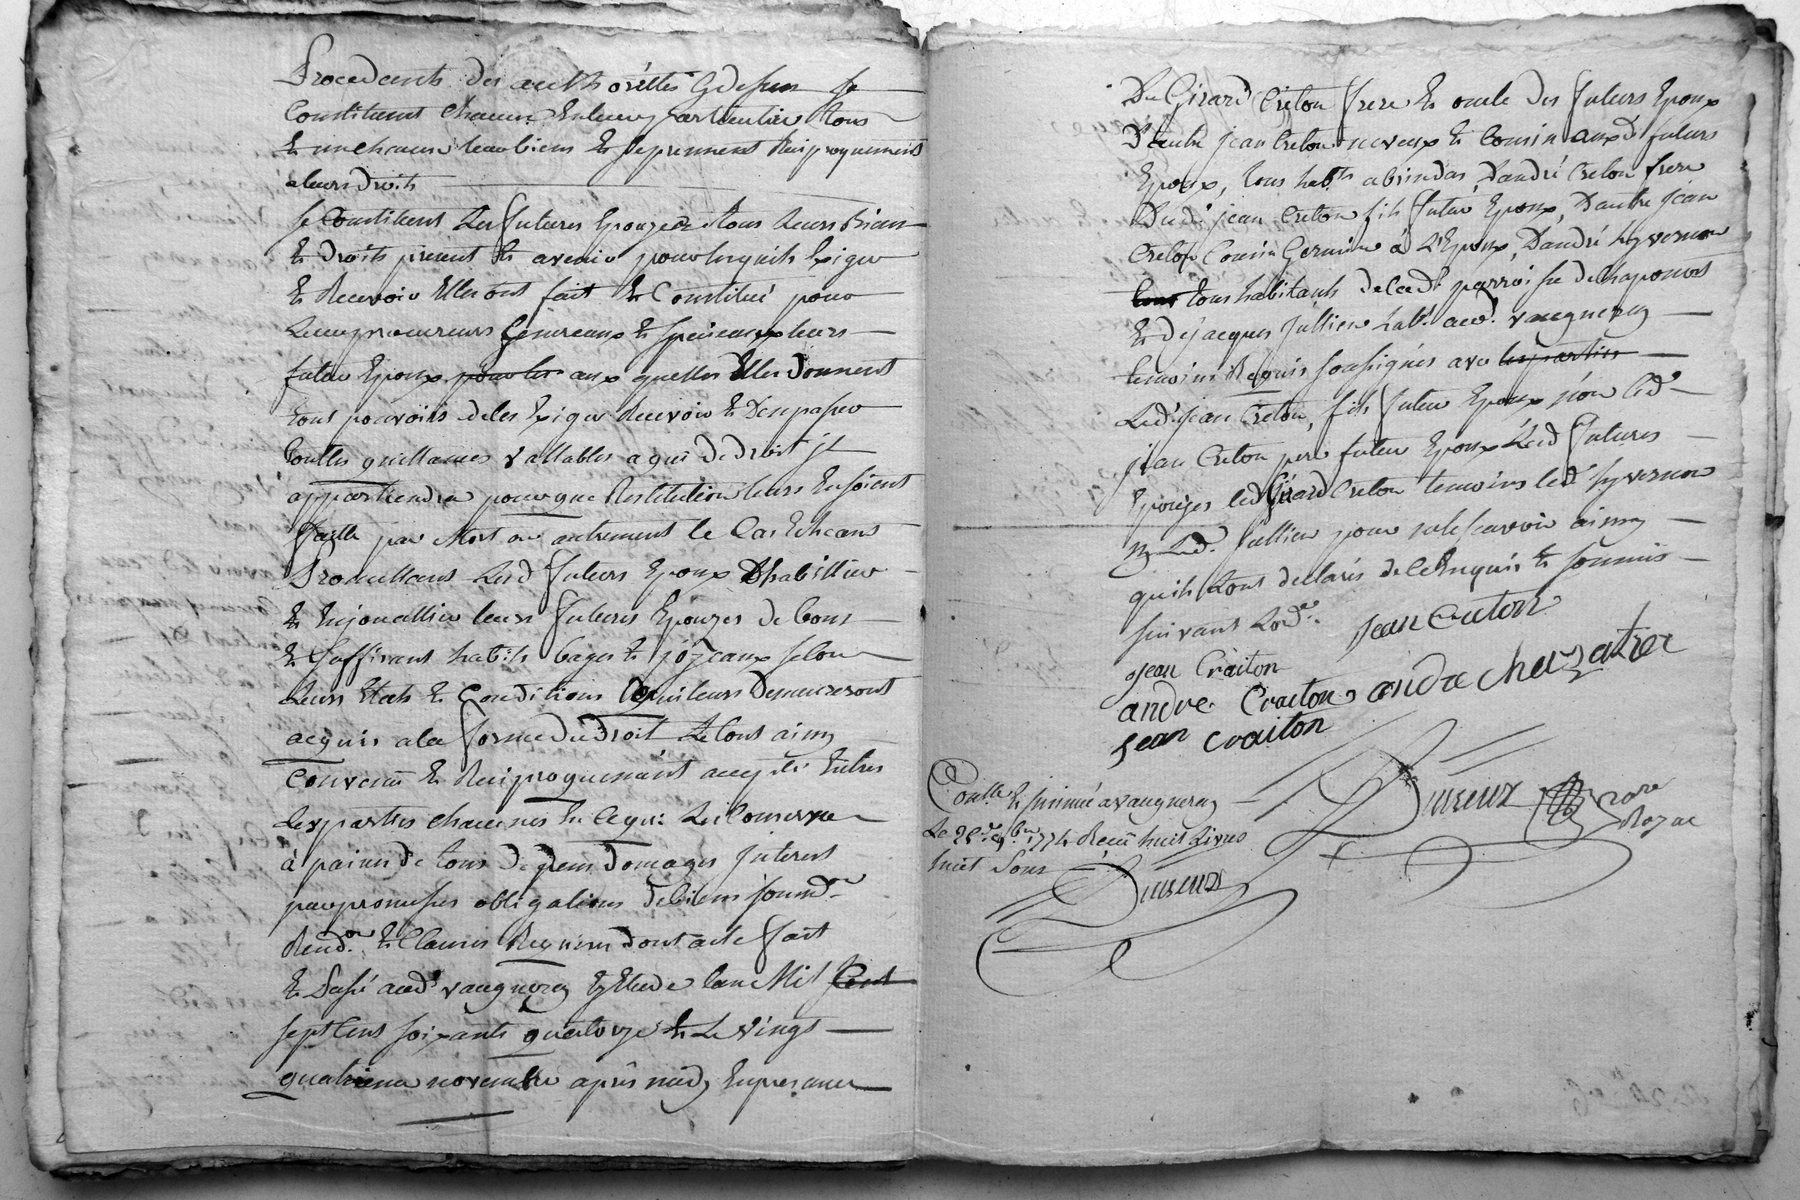 Procedants des authorittés Cydessus se
Constituent Chacun En leur particulier tous
Et un chacun leurs biens Et se prennent Reciproquement
a leurs droits
se Constituent Les futures Epouzes tous Leurs Biens
Et droits present Et avenir pour lesquels Exiger
Et Recevoir Elles ont fait Et Constitué pour
Leurs procureurs Generaux Et speciaux leurs
futur Epoux pour les aux quelles Elles donnent
tous pouvoirs de les Exiger Recevoir Et Den passer
touttes quittances vallables a qui de droit il
appartiendra pour que Restitution leurs En soient
faitte par Mort ou autrement le Cas Echeant
Promettans Lesd futurs Epoux Dhabillier
Et Enjouallier leurs futures Epouzes de bons
Et suffisant habits bagues Et jojeaux selon
Leurs Etats Et Conditions qui leurs Demeureront
acquis a la forme du Droit Le tout ainsy
Convenu Et Reciproquement accepté Entres
Les parties chacunes En Ce qui Les Conserne
à paines de tous Depens domages Interest
par promesses obligations de biens soumd.on
Rend.on Et Clauses Requises dont acte fait
Et Passé aud. vaugneray Etude Lan Mil Cent
sept Cent soixante quatorze Et Le vingt
quatrieme novembre après midy En presance
De Girard Créton frere Et oncle des futurs Epoux
D'autre jean Creton neveux Et Cousin auxd futurs
Epoux, tous hab.ts a brindas, D'andré Creton frere
Dud. jean Creton fils futur Epoux, D'autre jean
Creton Cousin Germain à L'Epoux, D'andré hyvernon
tous tous habitants de lad. parroisse de Chaponost
Et de jacques jullien hab. aud. vaugneray
temoins Requis soussignés avec les parties
Led. jean Creton, fils futur Epoux non led.
jean Creton pere futur Epoux Lesd futures
Epouzes led Girard Creton temoins led hyvernon
ny Led. jullien pour ne le scavoir ainsy
quils Lont declarés de Ce Enquis Et sommés
suivant Lord.ce jean Craton
jean Craiton
andre Craiton andre chavzatrer
jean Craiton
Contlé Et insinué a vaugneray
Le 25e 9bre 1774 Recu huit Livres
huit sous
Dureux
Dureux
nore
Royal